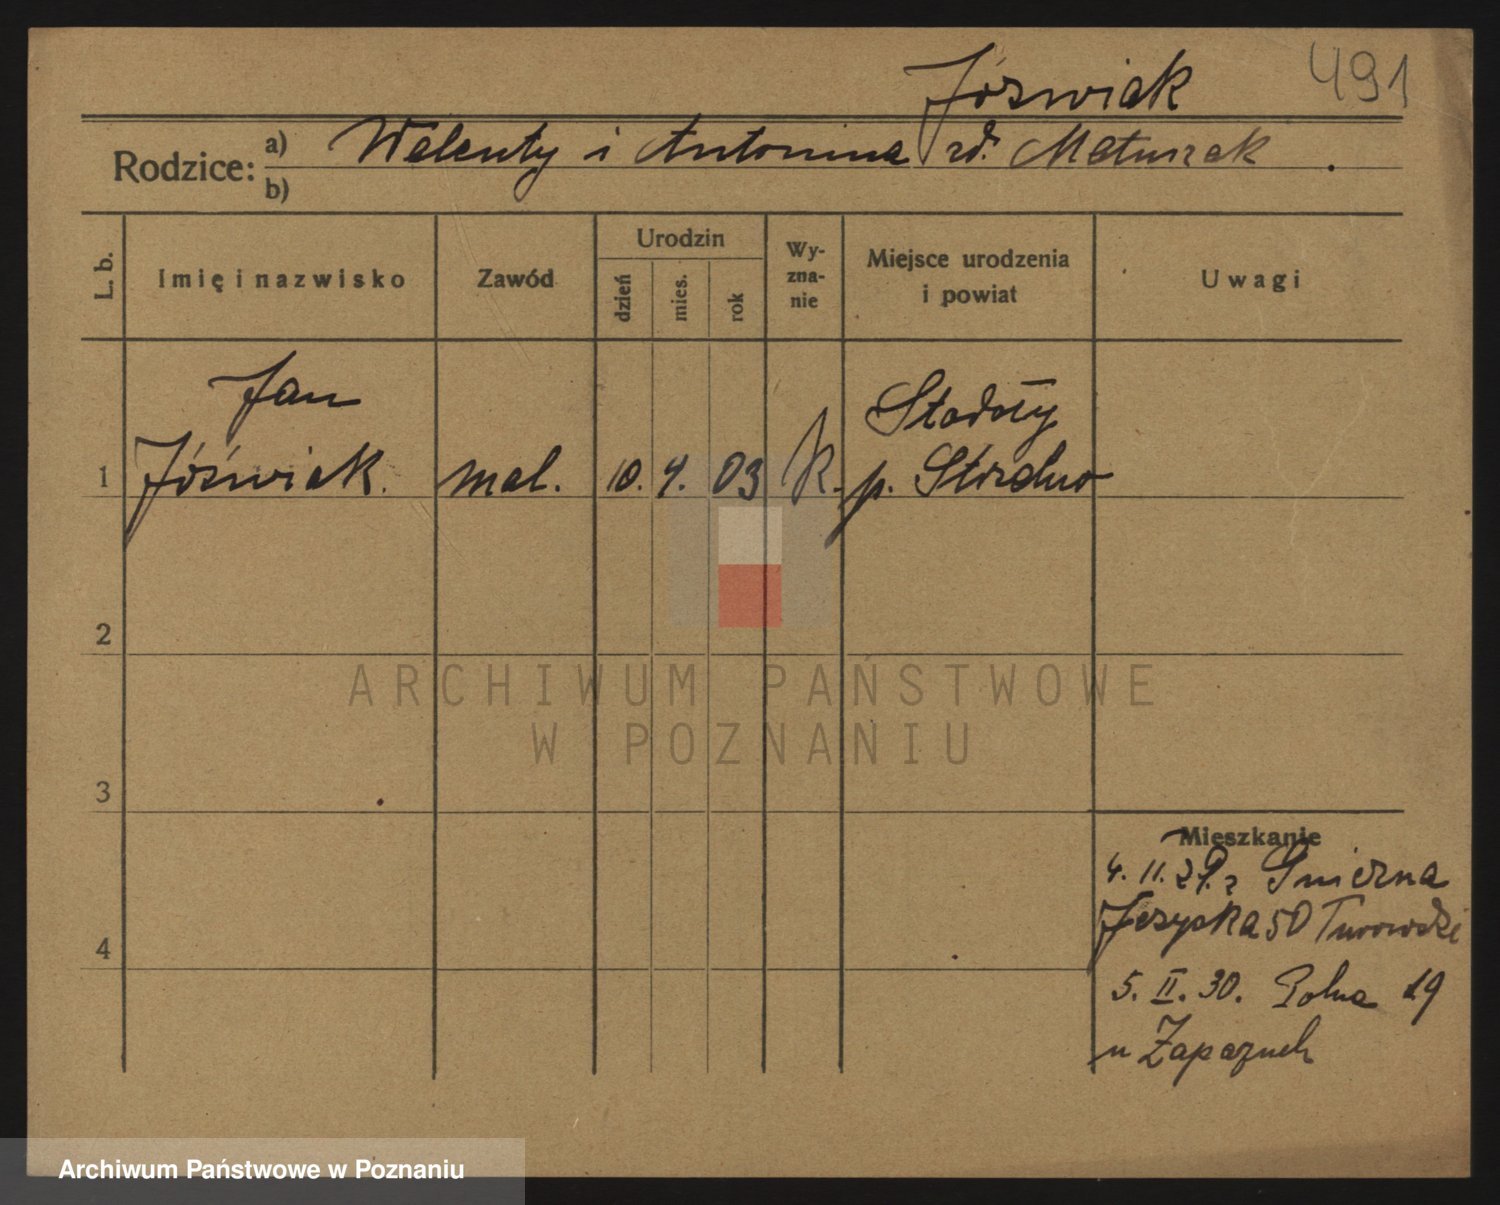 Jóźwiak
491
Rodzice: a) Walenty i Antonina zd. Matuszak
b)
L. b.
Imię i nazwisko
Zawód
Urodzin
dzień
mies.
rok
Wy-
zna-
nie
Miejsce urodzenia
i powiat
Uwagi
Jan
Stodoły
1 Jóźwiak. mal. 10. 4. 03 k. p. Strzelno
2
3
4
Mieszkanie
4. 11. 29. z
50
5. II. 30. Polna 19
u
ARCHIWUM PAŃSTWOWE
W POZNANIU
Archiwum Państwowe w Poznaniu